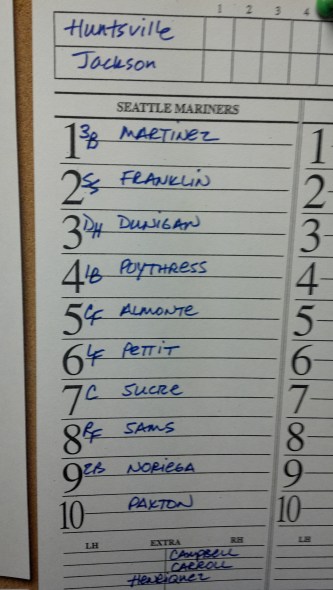 1 2 3 4
Huntsville
Jackson
SEATTLE MARINERS
1 3B MARTINEZ 1
2 SS FRANKLIN 2
3 DH DUNIGAN 3
4 1B POYTHRESS 4
5 CF ALMONTE 5
6 LF PETTIT 6
7 C SUCRE 7
8 RF SAMS 8
9 2B NORIEGA 9
10 PAXTON 10
LH EXTRA RH LH
CAMPBELL
CARROLL
HENRIQUEZ